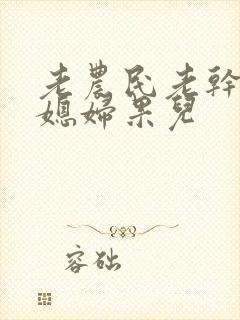 老農民老幹
媳婦果兒
容础